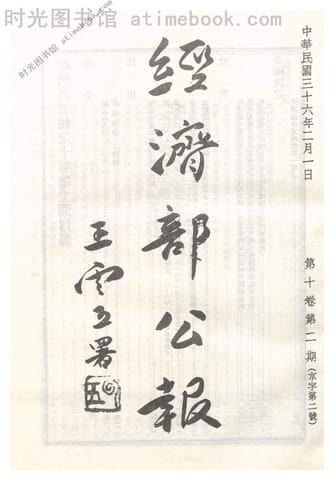 时光图书馆 atimebook.com
时光图书馆 atimebook.com
中華民國三十六年二月一日
第十卷第二期(京字第二號)
經濟部公報
王雲五署
时光图书馆 atimebook.com